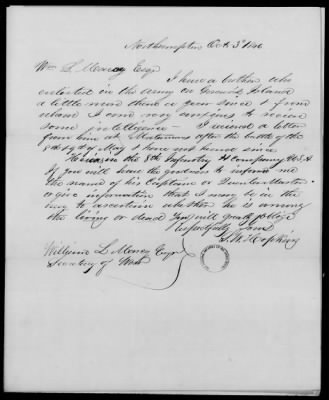 Northampton Oct 3d 1846
Wm L Marcy Esqr
I have a brother who
enlisted in the army on Governors Island
a little more than a year since & from
whom I am very anxious to receive
some intelligence - I received a letter
from him at Matamoras after the battle of the
8th & 9th of May & have not heard since
He is in the 8th Infantry H Company U.S.A
If you will have the goodness to inform me
the name of his Captain or
or give information that I may be in the
way to ascertain whether he is among
the living or dead You will greatly oblige
Respectfully yours
S. W. Hopkins
William L Marcy Esqr
Secretary of War